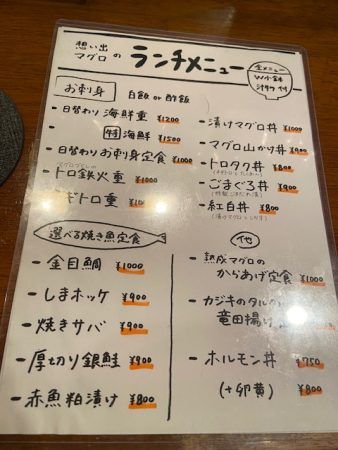 想い出
マグロ の ランチメニュー
全メニュー
W小鉢
汁物付
お刺身 白飯 or 酢飯
- 日替わり 海鮮重 ¥1200
- 特 海鮮 ¥1500
- 日替わり お刺身定食 ¥1000
- トロ鉄火重 ¥1000
ギトロ重
- 漬けマグロ丼 ¥1000
- マグロ山かけ丼 ¥900
- トロタク丼 ¥800
- ごまぐろ丼 ¥900
- 紅白丼 ¥800
選べる焼き魚定食
- 金目鯛 ¥1000
- しまホッケ ¥900
- 焼きサバ ¥900
- 厚切り銀鮭 ¥900
- 赤魚粕漬け ¥800
他
- 熟成マグロの
からあげ定食 ¥1000
- カジキのタルの
竜田揚げ
- ホルモン丼 ¥750
(+卵黄) ¥800